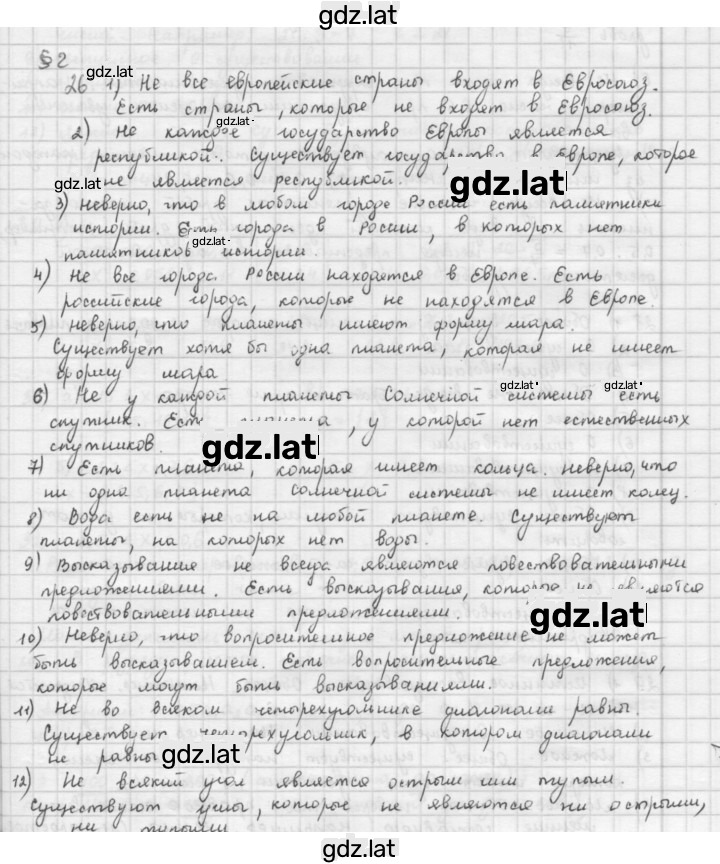 gdz.lat
§2
gdz.lat
26 1) Не все европейские страны входят в Евросоюз.
Есть страны, которые не входят в Евросоюз.
gdz.lat
2) Не каждое государство Европы является
республикой. Существует государство в Европе, которое
gdz.lat не является республикой. gdz.lat
3) Неверно, что в любом городе России есть памятники
истории. Есть города в России, в которых нет
gdz.lat
памятников истории.
4) Не все города России находятся в Европе. Есть
российские города, которые не находятся в Европе.
5) Неверно, что планеты имеют форму шара.
Существует хотя бы одна планета, которая не имеет
форму шара
gdz.lat gdz.lat
6) Не у каждой планеты Солнечной системы есть
спутник. Есть планета, у которой нет естественных
спутников. gdz.lat
7) Есть планета, которая имеет кольца. Неверно, что
ни одна планета Солнечной системы не имеет колец.
8) Вода есть не на любой планете. Существуют
планеты, на которых нет воды.
9) Высказывание не всегда являются повествовательными
предложениями. Есть высказывания, которые не являются
повествовательными предложениями. gdz.lat
10) Неверно, что вопросительное предложение не может
быть высказыванием. Есть вопросительные предложения,
которые могут быть высказываниями.
11) Не во всяком четырехугольнике диагонали равны.
Существует четырехугольник, в котором диагонали
не равны gdz.lat
12) Не всякий угол является острым или тупым.
Существуют углы, которые не являются ни острыми,
ни тупыми
gdz.lat